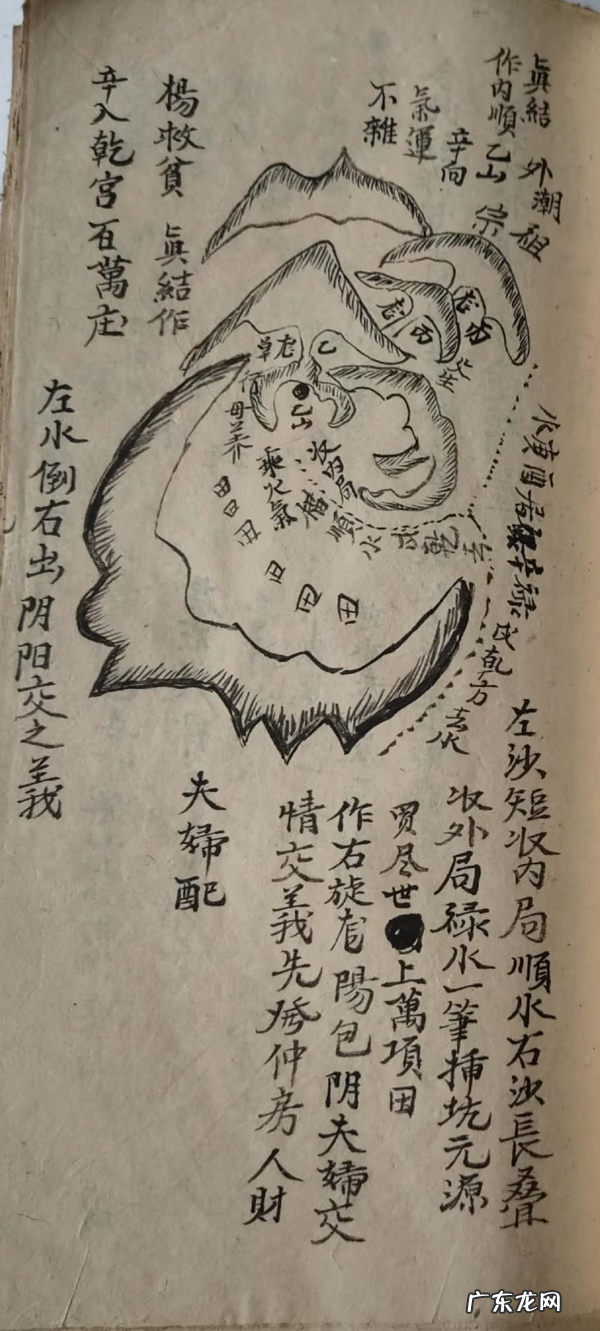 眞結 外潮
作内順乙山
辛向
祖
宗
氣運
不雜
楊救貧 眞結作
辛入乾宮百萬庄
左水倒右出阴阳交之義
乙
乙山
乘火氣
收内局
順
水
戌
乾
田
田
田
戌乾方
左沙短收内局順水右沙長叠
收外局禄水一筆揷坑元源
買尽世上萬項田
作右旋龙陽包阴夫婦交
情交義先發仲房人財
夫婦配
广东龙网